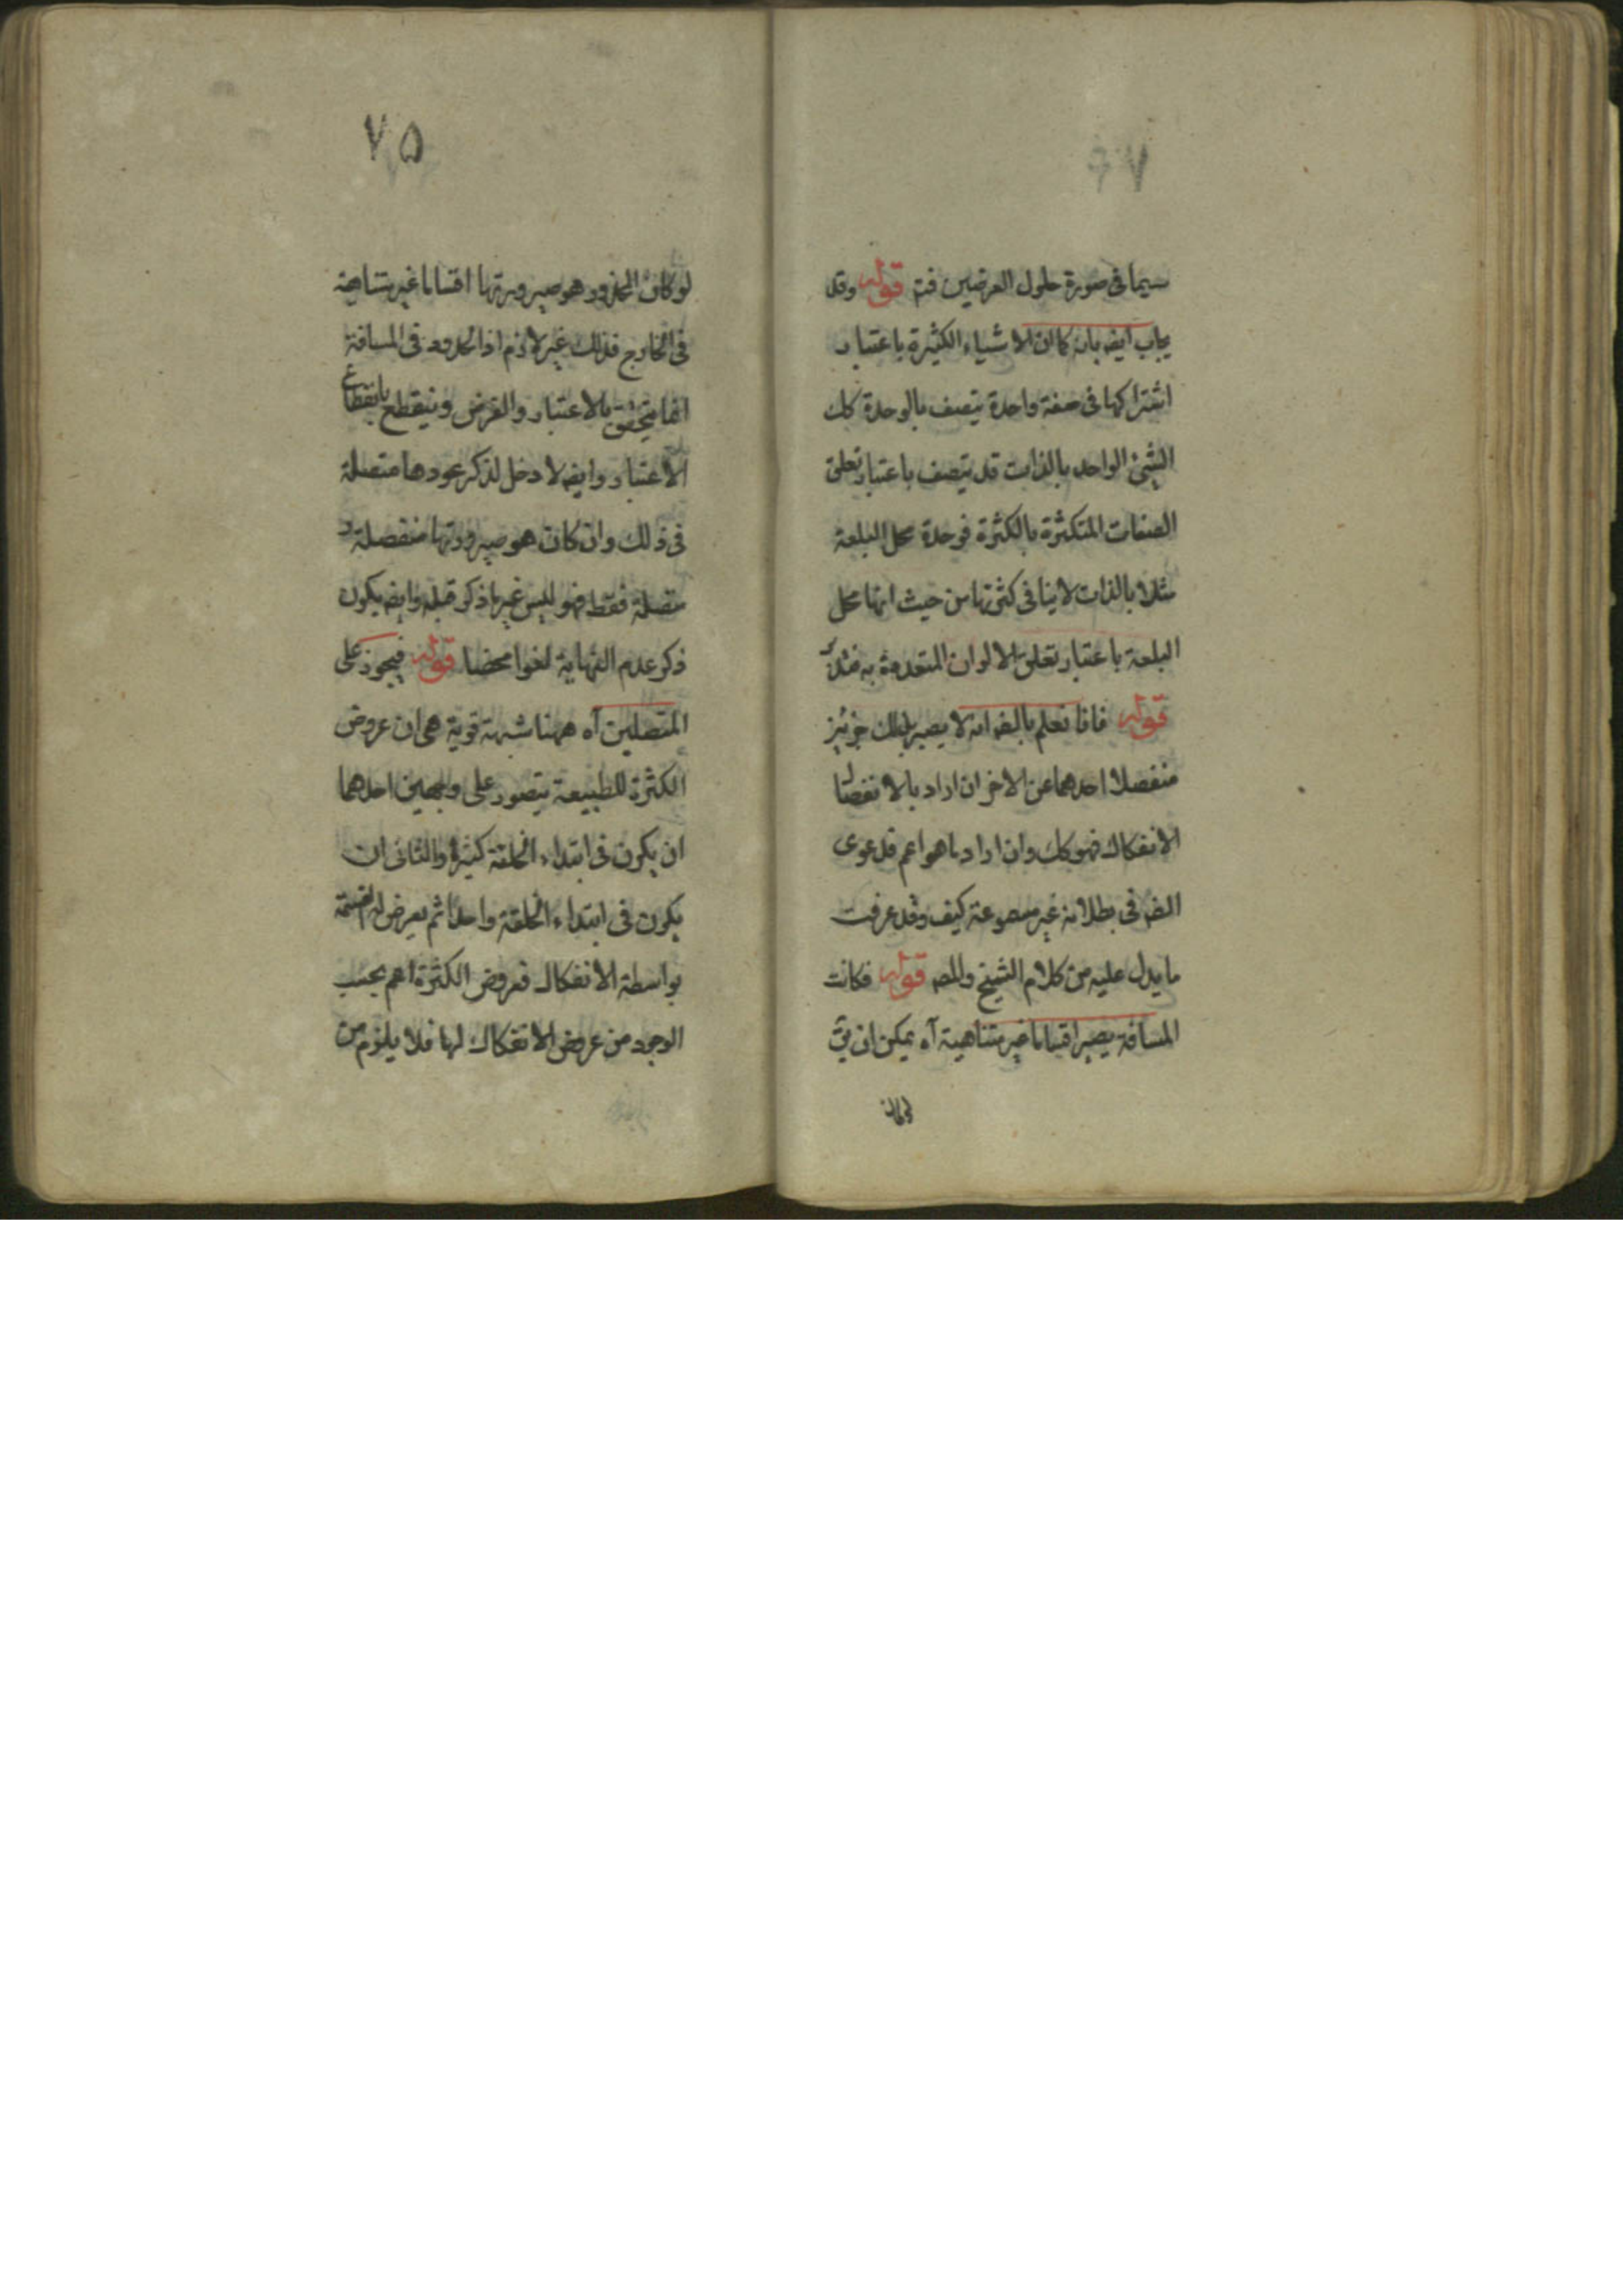 سيما فى صورة حلول العرضين فتم قوله وقد
يجاب ايضه بانه كما ان الاشياء الكثيرة باعتبار
اشتراكها فى صفة واحدة يتصف بالوحدة كك
الشئ الواحد بالذات قد يتصف باعتبار تعلق
الصفات المتكثرة بالكثرة فوحدة محل البلعة
مثلا بالذات لاينافى كثرتها من حيث انها محل
البلعة باعتبار تعلق الالوان المتعددة به مثلا
قوله فانا نعلم بالضه انه لا يصير بذلك جزئين
منفصلا احدهما عن الاخر ان اراد بالانفصال
الانفكاك فهو كك وان اراد ما هو اعم فدعوى
الضه فى بطلانه غير مسموعة كيف وقد عرفت
ما يدل عليه من كلام الشيخ والمصه قوله فكانت
المسافة يصير اقساما غير متناهية آه يمكن ان يق
لو كان
٧٥
لو كان المحذور هو صيرورتها اقساما غير متناهية
فى الخارج فذلك غير لازم اذ الحدود فى المسافة
انما يتحقق بالاعتبار والفرض وينقطع بانقطاع
الاعتبار وايضه لا دخل لذكر عودها متصلة
فى ذلك وان كان هو صيرورتها منفصلة و
متصلة فقط فهو ليس غير ما ذكر قبله وايضه يكون
ذكر عدم النهاية لغوا محضا قوله فيجوز على
المتصلين آه ههنا شبهة قوية هى ان عروض
الكثرة للطبيعة يتصور على وجهين احدهما
ان يكون فى ابتداء الخلقة كثيرا والثانى ان
يكون فى ابتداء الخلقة واحدا ثم يعرض له القسمة
بواسطة الانفكاك فعروض الكثرة اعم بحسب
الوجود من عروض الانفكاك لها فلا يلزم من